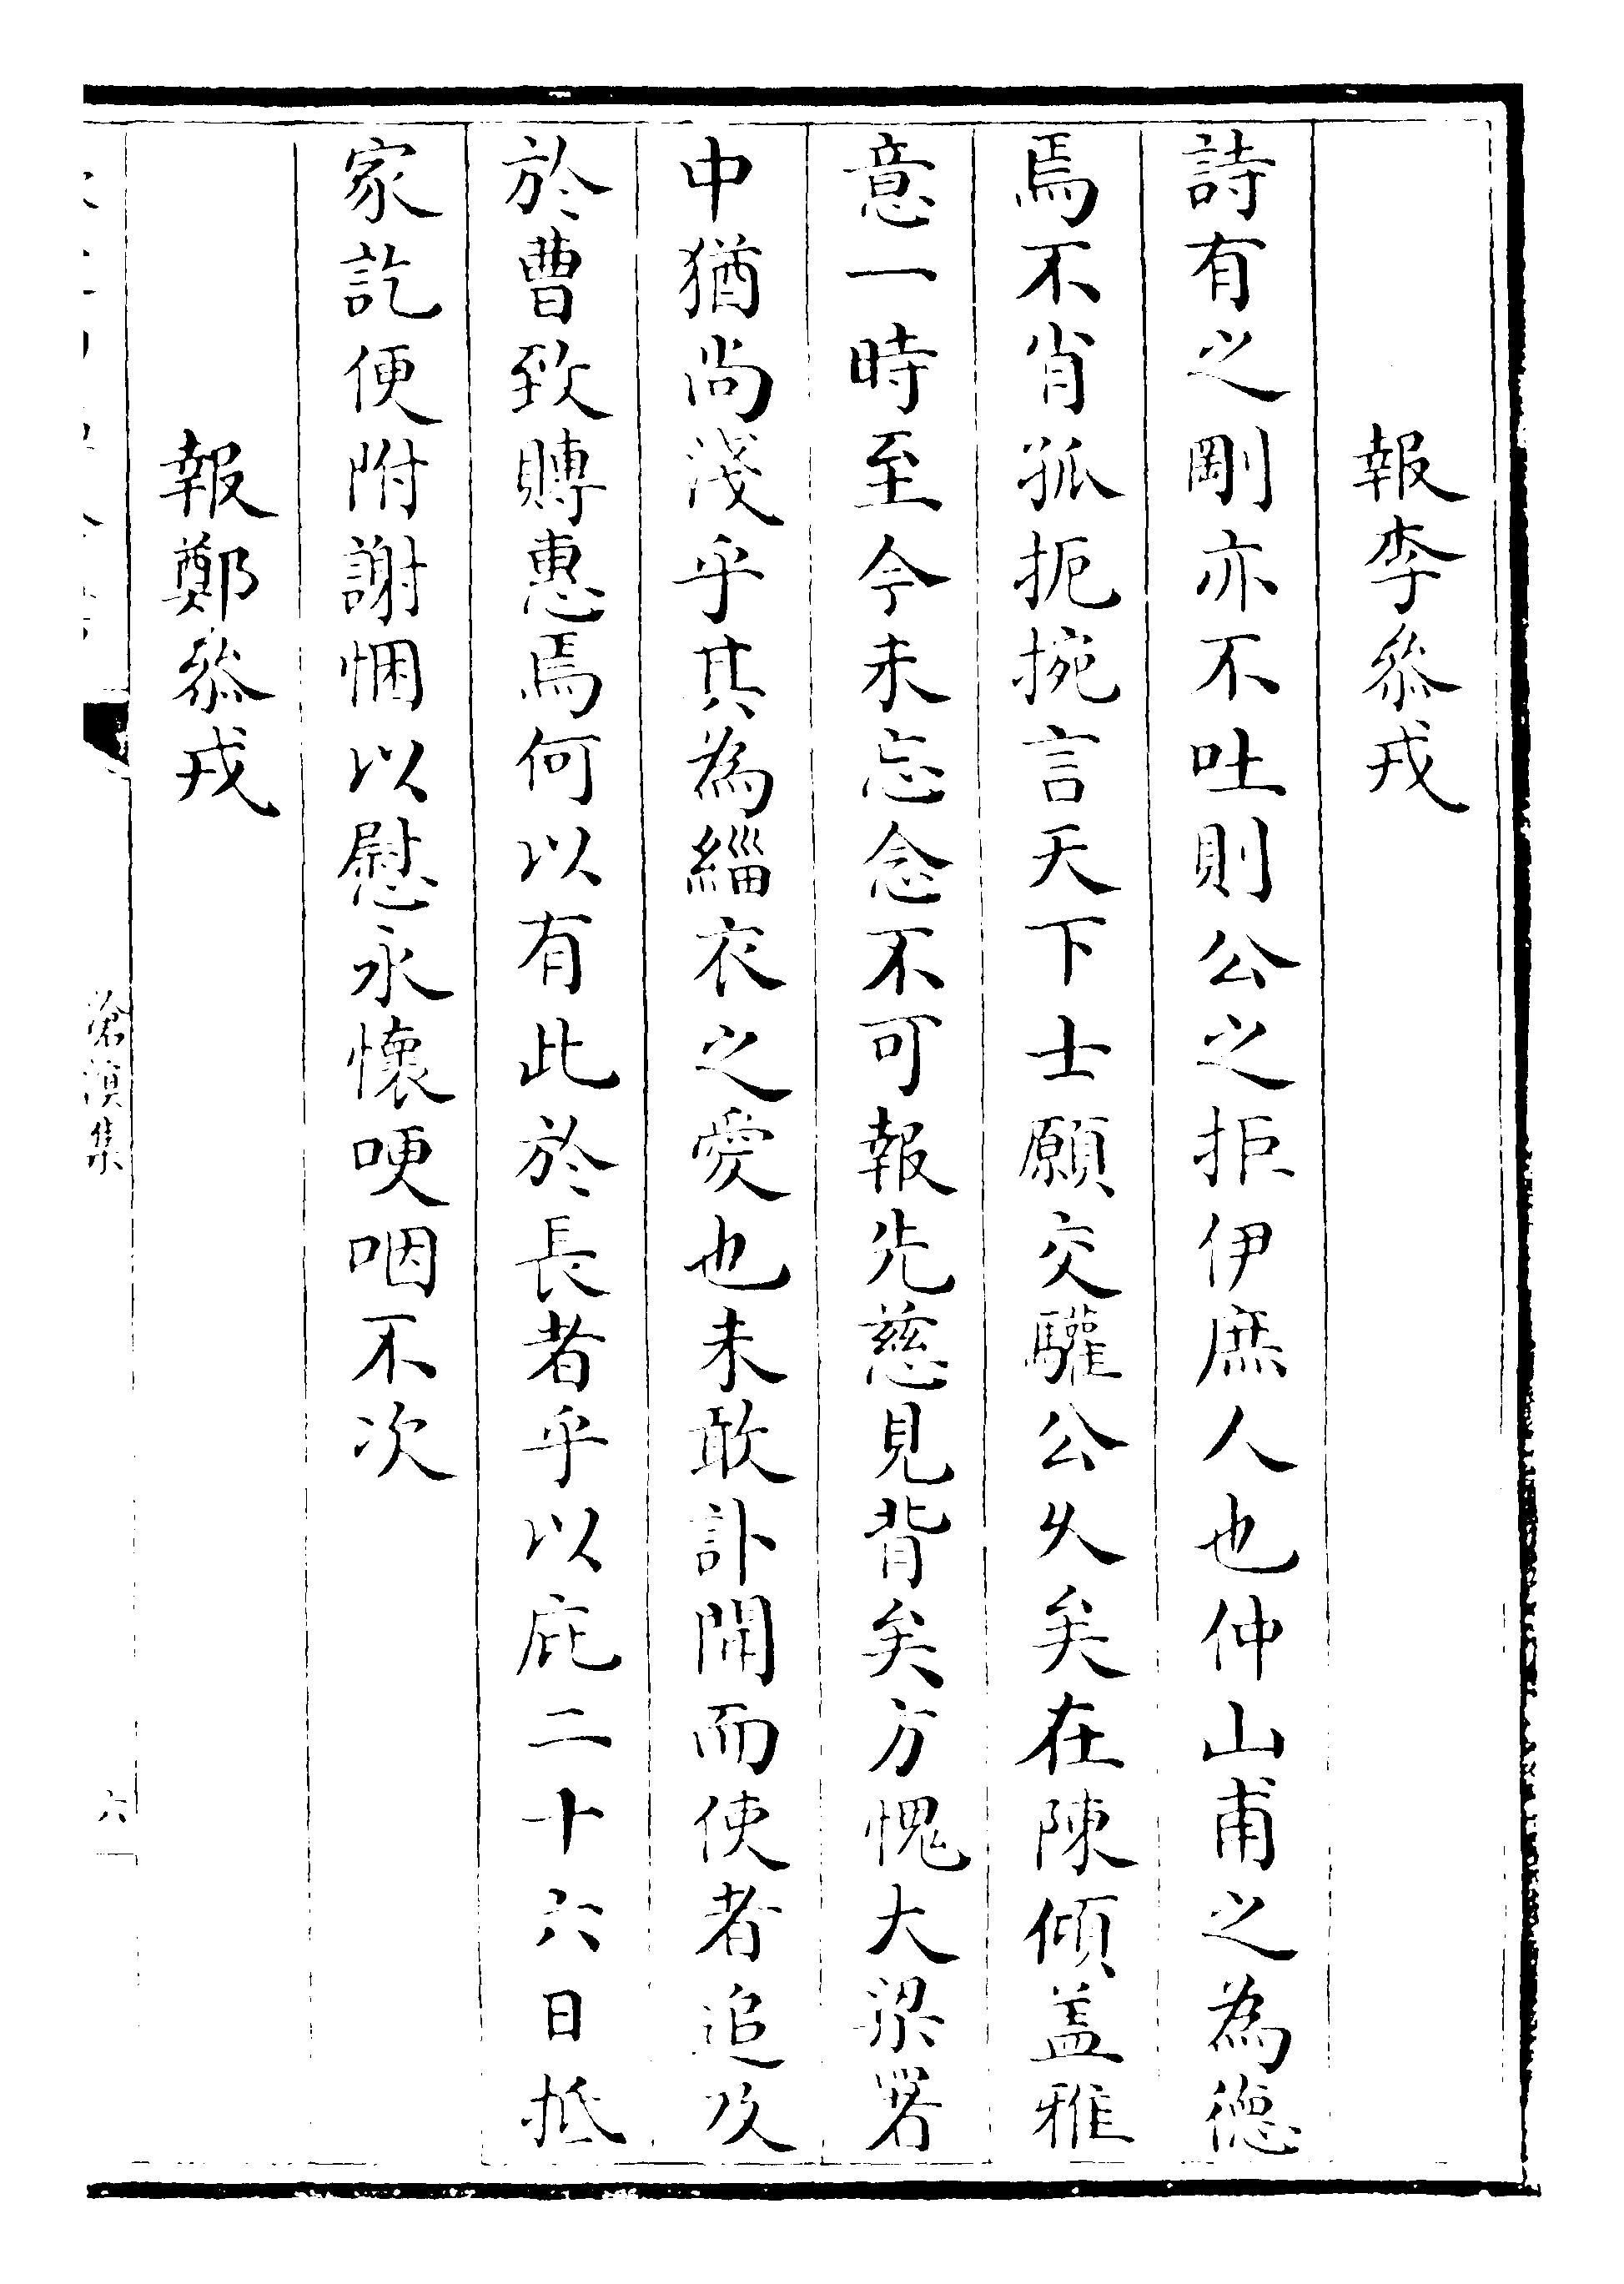 報李叅戎
詩有之剛亦不吐則公之拒伊庶人也仲山甫之為德
焉不肖孤扼捥言天下士願交驩公久矣在陳傾盖雅
意一時至今未忘念不可報先慈見背矣方愧大梁署
中猶尚淺乎其為緇衣之愛也未敢訃聞而使者追及
於曹致賻惠焉何以有此於長者乎以庇二十六日抵
家訖便附謝悃以慰永懷哽咽不次
報鄭叅戎
滄溟集
六